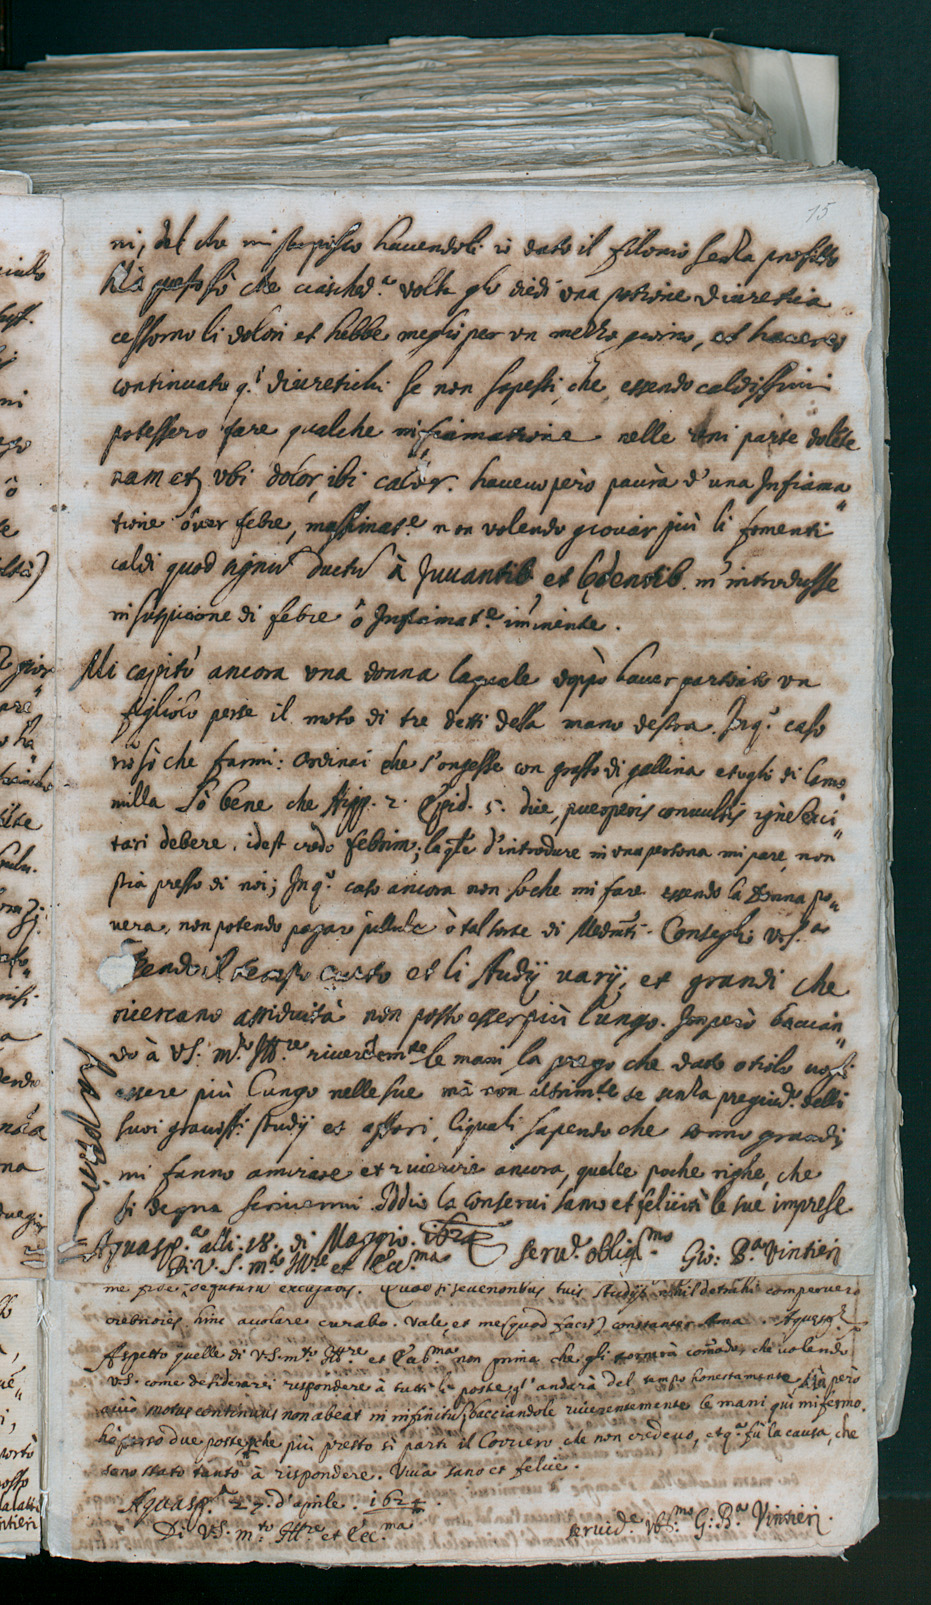 15
ni, del che mi stupisco havendoli io dato il filonio senza profitto
questo sò che ciasched.ª volta gli diedi una potione diuretica
cessorno li dolori et hebbe meglio per un mezzo giorno, et haverei
continuato q.i diuretichi se non sapesti, che, essendo caldissimi
potessero fare qualche infiamatione nelle parte dolẽte
nam et, ubi dolor, ibi calor. havevo però paura d'una Infiama„
tione ò ver febre, massimate. non volendo giovar più li fomenti
caldi quod signũ ductũ à Juvantib. et Ledentib. m'introdusse
in suspicione di febre ò Infiamat.e iminente.
Mi capitò ancora una donna laquale doppò haver partorito un
figliolo perse il moto di tre detti della mano destra. In q.º caso
nõ sò che farmi: ordinai che s'ongesse con grasso di gallina et oglio di Camo„
milla Sò bene che Hipp. 2. Epid. 5. dice, puerperis convulsis ignẽ exci„
tari debere, idest credo febrim; la q̃le d'introdure in una persona mi pare, non
stia presso di noi; In q.º caso ancora non so che mi fare essendo la Donna po„
vera, non potendo pagar pillule ò tal sorte di Medicm̃ti. Consegli V.S.
il tempo curto et li studij varij, et grandi che
ricercano assiduità non posso esser più lungo. Imperò bacian„
do à V.S. m.to Ill.re riverentem.te le mani la prego che dato otiolo vogli
essere più lungo nelle sue mà non altrim.te se senza pregiud.º delli
suoi gravissi. studij et affari, liquali sapendo che sonno grandi,
mi fanno amirare et riverire ancora, quelle poche righe, che
si degna scrivermi. Iddio la conservi sano et feliciti le sue imprese
Aquasp.ta alli. 18. di Maggio. 1624
Di V. S. m.to Ill.re et Ecc.ma servi.e oblig.mo Gio: B.a Vintieri
me excusavis. Quod si severioribus tuis studijs nihil detrahi comperuero
crebriores hinc avolare curabo. Vale, et me (quod facis) constanter Ama.
Aspetto quelle di V.S. m.to Ill.re et Ecc.ma non prima che gli tornerà comodo, che volendo
V.S. come desiderarei rispondere à tutti le poste, gl'andarà del tempo honestamente però
acciò motus continuus non abeat in infinitũ, bacciandole riverentemente le mani quì mi fermo.
hò perso due poste, che più presto si partì il Corriero che non credevo, et q.ª fù la causa, che
sono stato tanto à rispondere. Viva sano et felice.
Aquasp.ta 27. d'aprile. 1624.
Di V.S. m.to Ill.re et Ecc.ma servid.e G: B.a Vintieri.